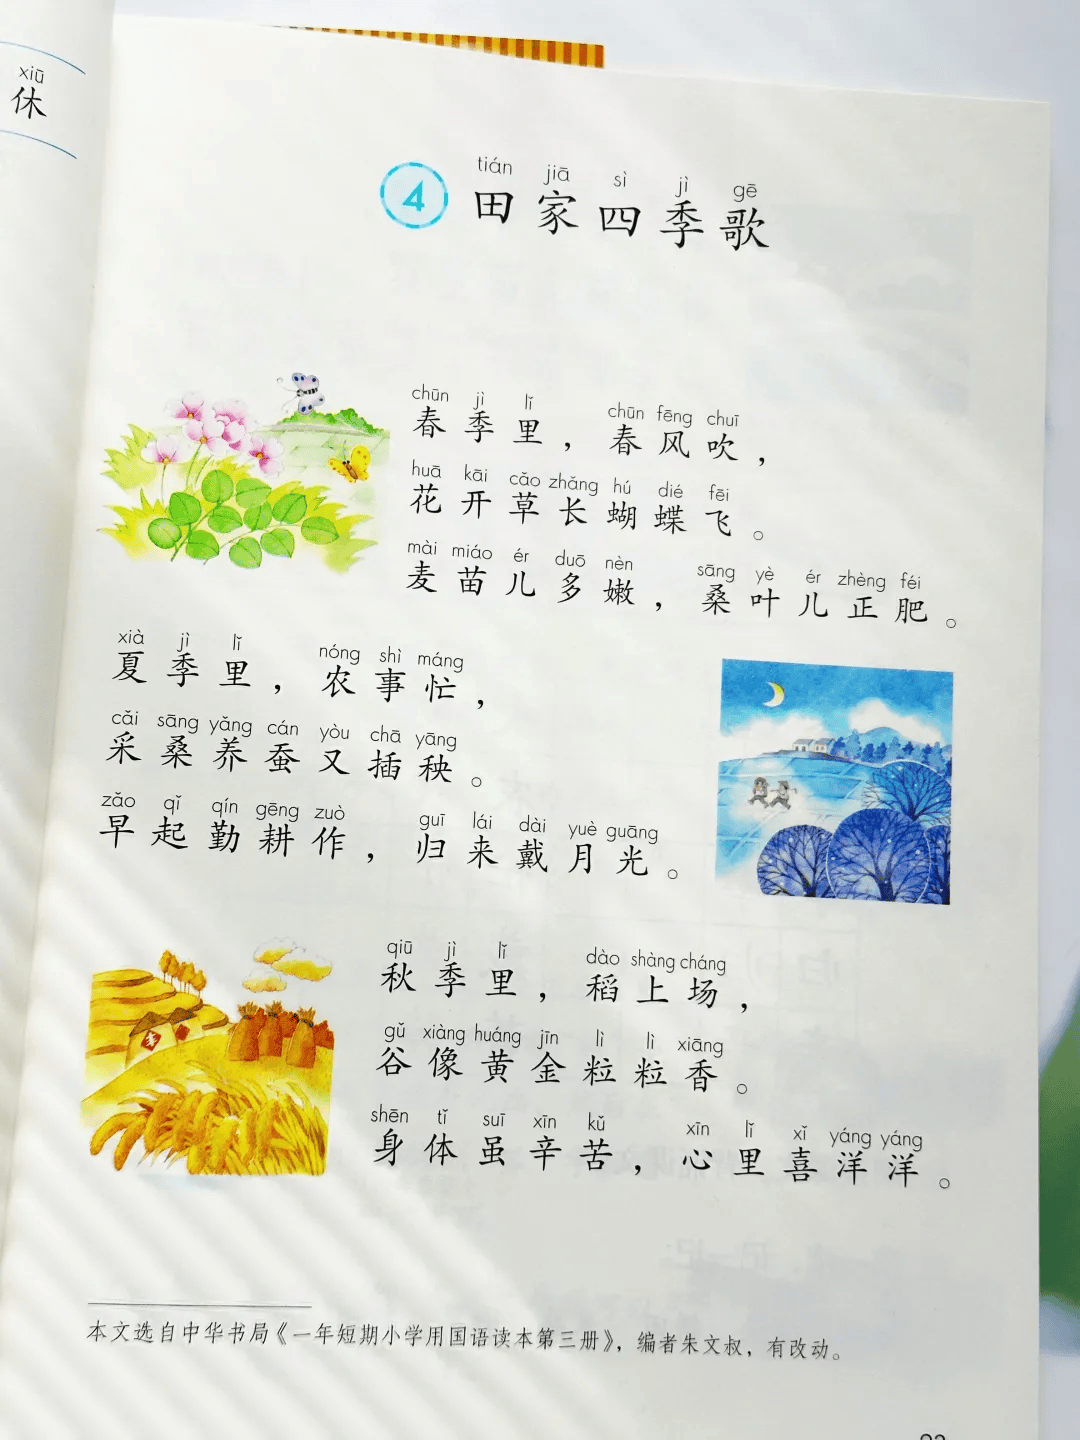 xiū
休
tián jiā sì jì gē
4 田家四季歌
chūn jì lǐ chūn fēng chuī
春季里，春风吹，
huā kāi cǎo zhǎng hú dié fēi
花开草长蝴蝶飞。
mài miáo ér duō nèn sāng yè ér zhèng féi
麦苗儿多嫩，桑叶儿正肥。
xià jì lǐ nóng shì máng
夏季里，农事忙，
cǎi sāng yǎng cán yòu chā yāng
采桑养蚕又插秧。
zǎo qǐ qín gēng zuò guī lái dài yuè guāng
早起勤耕作，归来戴月光。
qiū jì lǐ dào shàng cháng
秋季里，稻上场，
gǔ xiàng huáng jīn lì lì xiāng
谷像黄金粒粒香。
shēn tǐ suī xīn kǔ xīn lǐ xǐ yáng yáng
身体虽辛苦，心里喜洋洋。
本文选自中华书局《一年短期小学用国语读本第三册》，编者朱文叔，有改动。